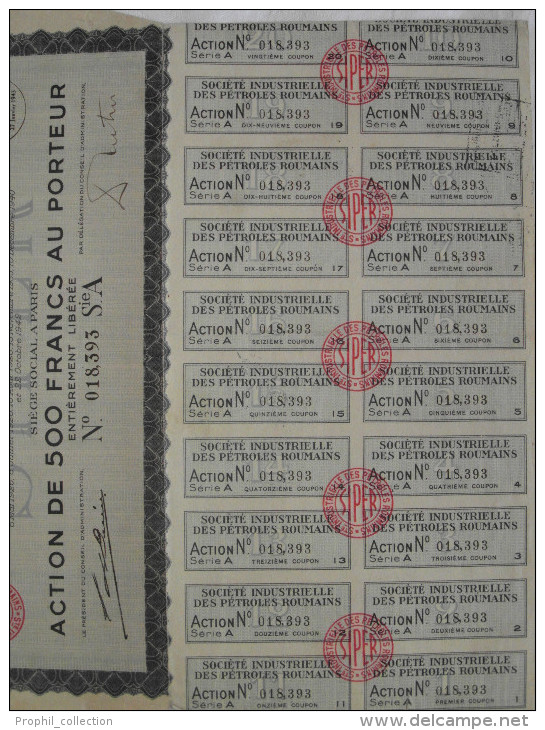 et 28 Octobre 1948
SIÈGE SOCIAL A PARIS
ACTION DE 500 FRANCS AU PORTEUR
ENTIÈREMENT LIBÉRÉE
Nº 018,393 SIE A
LE PRÉSIDENT DU CONSEIL D'ADMINISTRATION,
PAR DÉLÉGATION DU CONSEIL D'ADMINISTRATION,
SOCIÉTÉ INDUSTRIELLE
DES PÉTROLES ROUMAINS
ACTION Nº 018,393
Série A VINGTIÈME COUPON 20
SOCIÉTÉ INDUSTRIELLE
DES PÉTROLES ROUMAINS
ACTION Nº 018,393
Série A DIXIÈME COUPON 10
SOCIÉTÉ INDUSTRIELLE
DES PÉTROLES ROUMAINS
ACTION Nº 018,393
Série A DIX-NEUVIÈME COUPON 19
SOCIÉTÉ INDUSTRIELLE
DES PÉTROLES ROUMAINS
ACTION Nº 018,393
Série A NEUVIÈME COUPON 9
SOCIÉTÉ INDUSTRIELLE
DES PÉTROLES ROUMAINS
ACTION Nº 018,393
Série A DIX-HUITIÈME COUPON 18
SOCIÉTÉ INDUSTRIELLE
DES PÉTROLES ROUMAINS
ACTION Nº 018,393
Série A HUITIÈME COUPON 8
SOCIÉTÉ INDUSTRIELLE
DES PÉTROLES ROUMAINS
ACTION Nº 018,393
Série A DIX-SEPTIÈME COUPON 17
SOCIÉTÉ INDUSTRIELLE
DES PÉTROLES ROUMAINS
ACTION Nº 018,393
Série A SEPTIÈME COUPON 7
SOCIÉTÉ INDUSTRIELLE
DES PÉTROLES ROUMAINS
ACTION Nº 018,393
Série A SEIZIÈME COUPON 16
SOCIÉTÉ INDUSTRIELLE
DES PÉTROLES ROUMAINS
ACTION Nº 018,393
Série A SIXIÈME COUPON 6
SOCIÉTÉ INDUSTRIELLE
DES PÉTROLES ROUMAINS
ACTION Nº 018,393
Série A QUINZIÈME COUPON 15
SOCIÉTÉ INDUSTRIELLE
DES PÉTROLES ROUMAINS
ACTION Nº 018,393
Série A CINQUIÈME COUPON 5
SOCIÉTÉ INDUSTRIELLE
DES PÉTROLES ROUMAINS
ACTION Nº 018,393
Série A QUATORZIÈME COUPON 14
SOCIÉTÉ INDUSTRIELLE
DES PÉTROLES ROUMAINS
ACTION Nº 018,393
Série A QUATRIÈME COUPON 4
SOCIÉTÉ INDUSTRIELLE
DES PÉTROLES ROUMAINS
ACTION Nº 018,393
Série A TREIZIÈME COUPON 13
SOCIÉTÉ INDUSTRIELLE
DES PÉTROLES ROUMAINS
ACTION Nº 018,393
Série A TROISIÈME COUPON 3
SOCIÉTÉ INDUSTRIELLE
DES PÉTROLES ROUMAINS
ACTION Nº 018,393
Série A DOUZIÈME COUPON 12
SOCIÉTÉ INDUSTRIELLE
DES PÉTROLES ROUMAINS
ACTION Nº 018,393
Série A DEUXIÈME COUPON 2
SOCIÉTÉ INDUSTRIELLE
DES PÉTROLES ROUMAINS
ACTION Nº 018,393
Série A ONZIÈME COUPON 11
SOCIÉTÉ INDUSTRIELLE
DES PÉTROLES ROUMAINS
ACTION Nº 018,393
Série A PREMIER COUPON 1
STÉ INDUSTRIELLE DES PÉTROLES ROUMAINS
SIPER
STÉ INDUSTRIELLE DES PÉTROLES ROUMAINS
SIPER
STÉ INDUSTRIELLE DES PÉTROLES ROUMAINS
SIPER
STÉ INDUSTRIELLE DES PÉTROLES ROUMAINS
SIPER
STÉ INDUSTRIELLE DES PÉTROLES ROUMAINS
SIPER
Prophil_collection
delcampe.net